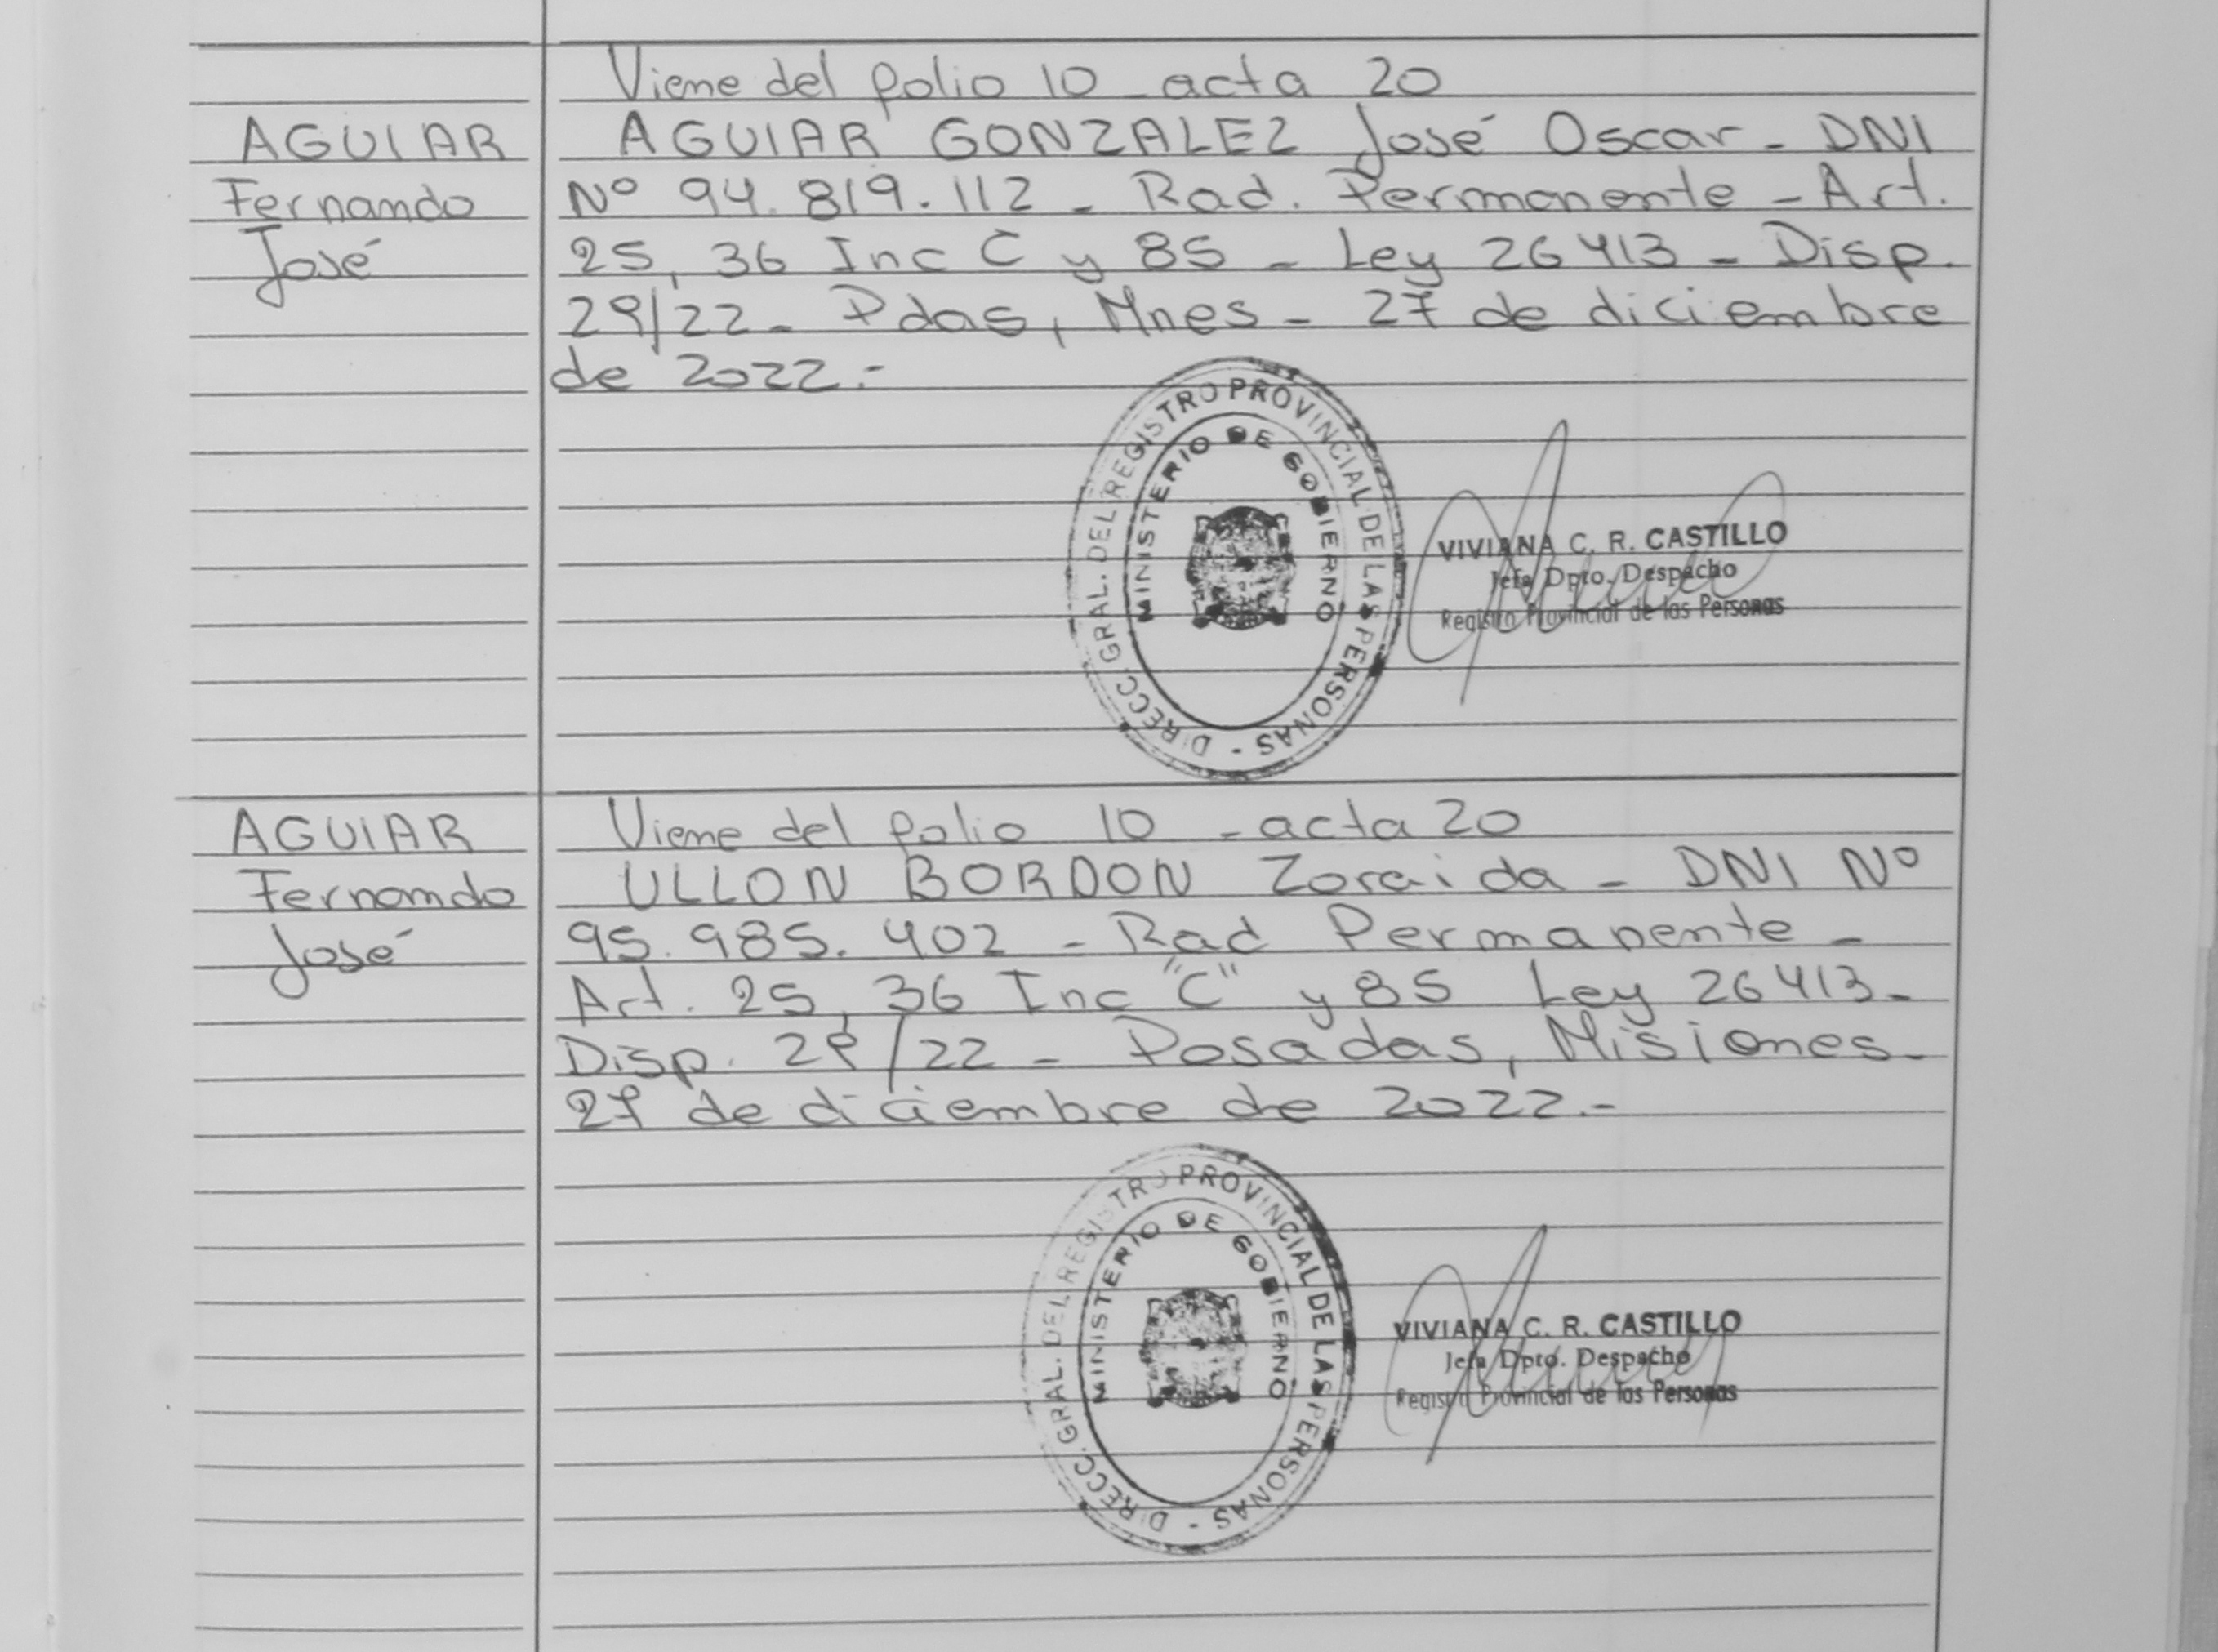 Viene del folio 10 - acta 20
AGUIAR
Fernando
José
AGUIAR GONZALEZ José Oscar - DNI
Nº 94.819.112 - Rad. Permanente - Art.
25, 36 Inc C y 85 - Ley 26413 - Disp.
29/22 - Pdas, Mnes - 27 de diciembre
de 2022.-
DIRECC. GRAL. DEL REGISTRO PROVINCIAL DE LAS PERSONAS -
MINISTERIO DE GOBIERNO
VIVIANA C. R. CASTILLO
Jefa Dpto. Despacho
Registro Provincial de las Personas
AGUIAR
Fernando
José
Viene del folio 10 - acta 20
ULLON BORDON Zoraida - DNI Nº
95.985.402 - Rad Permanente -
Art. 25, 36 Inc "C" y 85 Ley 26413-
Disp. 29/22 - Posadas, Misiones-
27 de diciembre de 2022.-
DIRECC. GRAL. DEL REGISTRO PROVINCIAL DE LAS PERSONAS -
MINISTERIO DE GOBIERNO
VIVIANA C. R. CASTILLO
Jefa Dpto. Despacho
Registro Provincial de las Personas